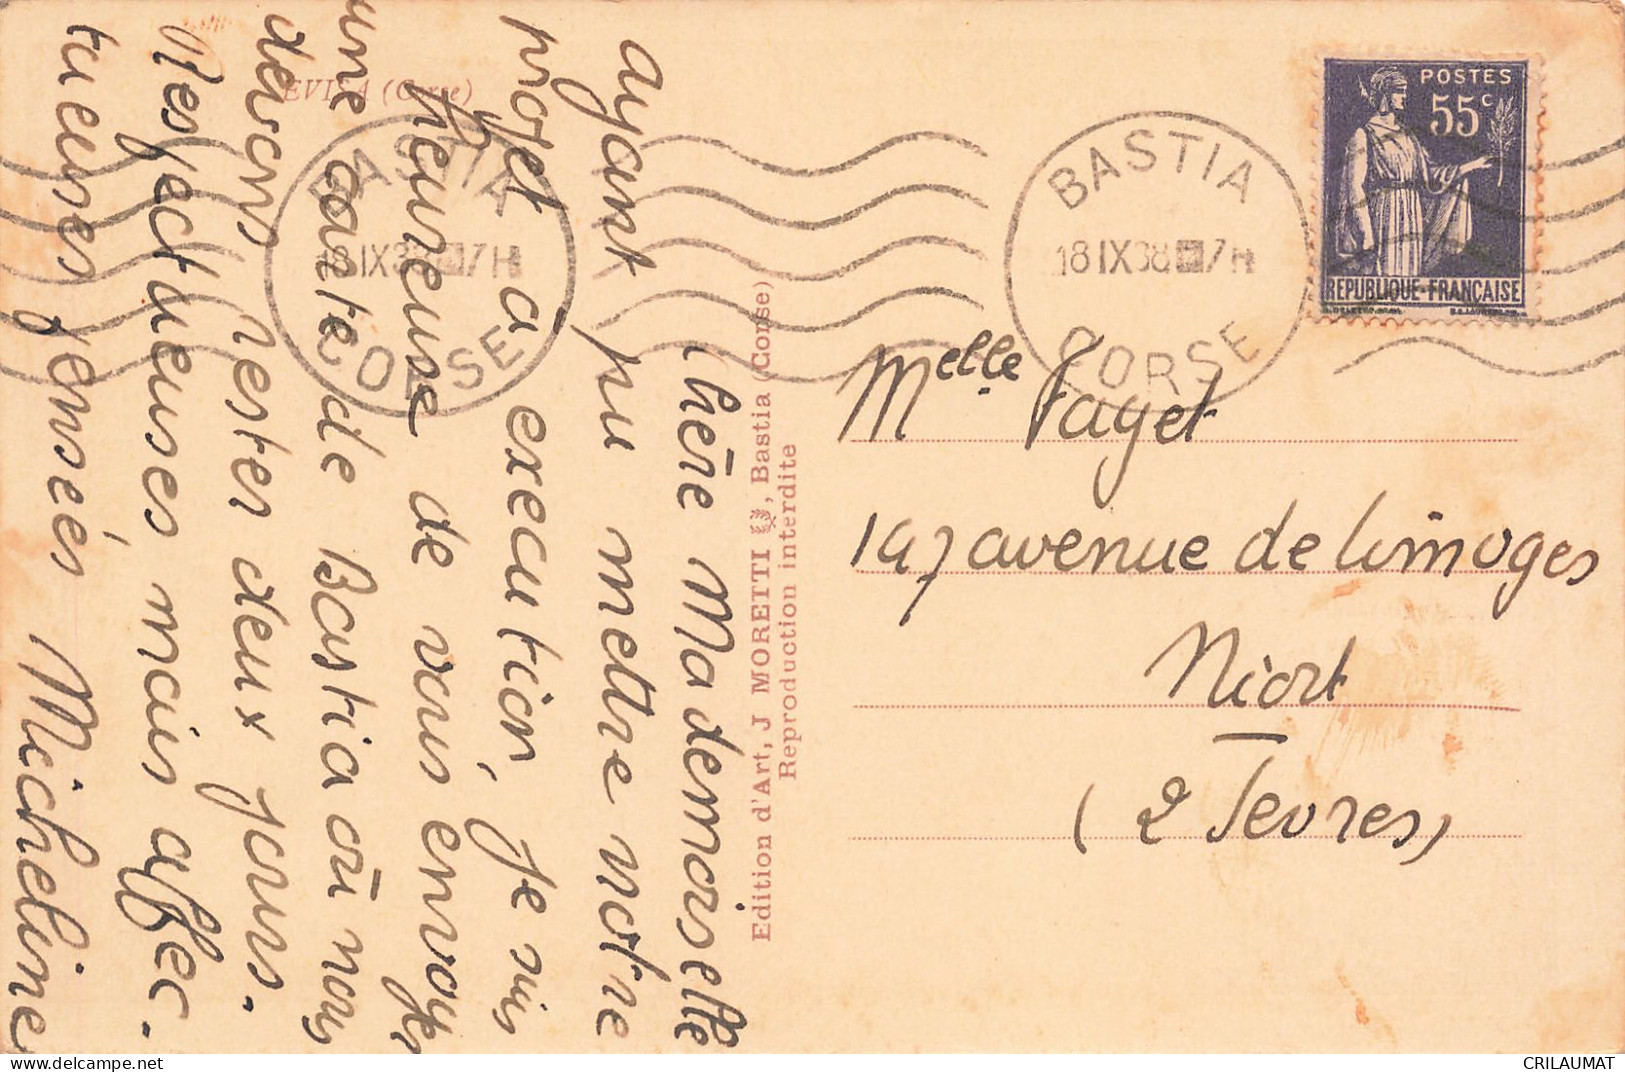 EVISA (Corse)
Chère Mademoiselle
ayant pu mettre notre
projet a execution, je suis
heureuse de vous envoyer
une carte de Bastia où nous
devons rester deux jours.
Respectueuses mais affec-
tueuses pensées Micheline
Edition d'Art, J MORETTI, Bastia (Corse)
Reproduction interdite
BASTIA
18 IX 38 7H
CORSE
BASTIA
18 IX 38 7H
CORSE
POSTES
55c
REPUBLIQUE-FRANÇAISE
Melle Faget
197 avenue de limoges
Niort
(2 Sevres)
CRILAUMAT